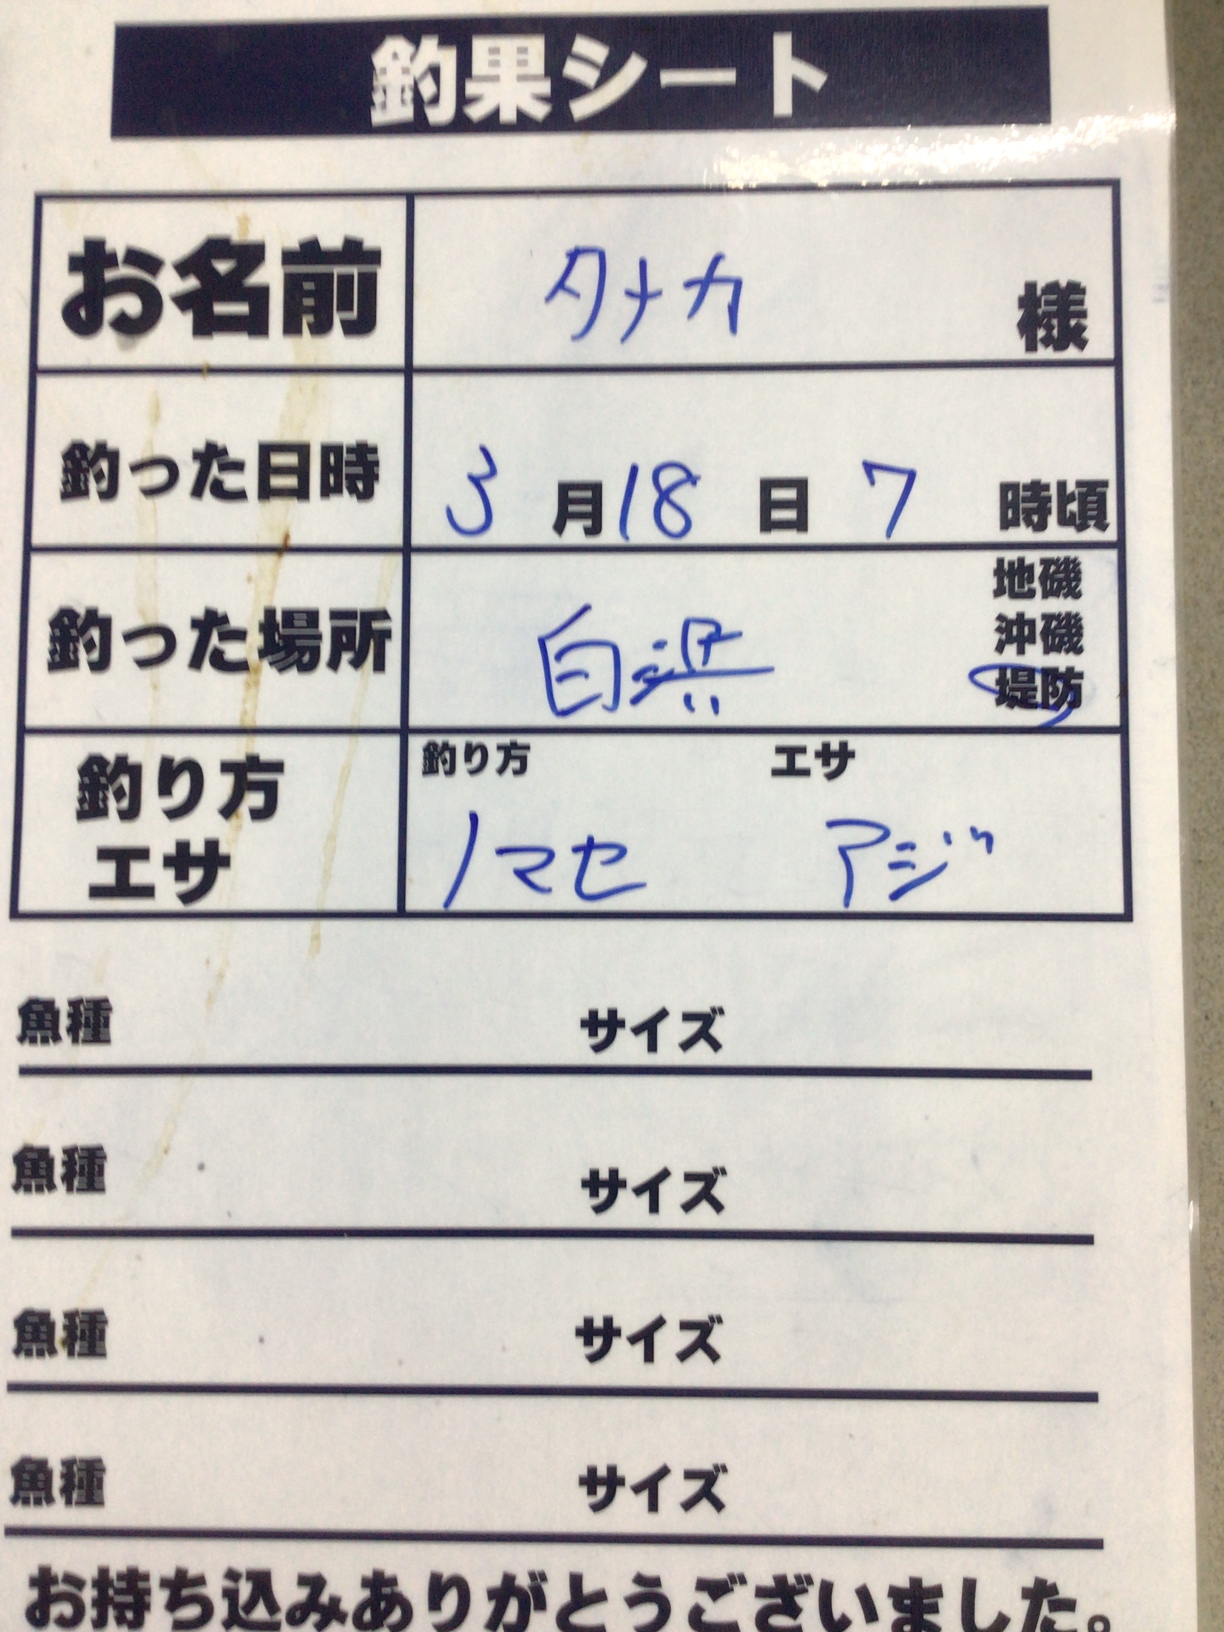 釣果シート
お名前 タナカ 様
釣った日時 3月18日 7時頃
釣った場所 白浜 地磯 沖磯 堤防
釣り方 エサ 釣り方 ノマセ エサ アジ
魚種 サイズ
魚種 サイズ
魚種 サイズ
魚種 サイズ
お持ち込みありがとうございました。